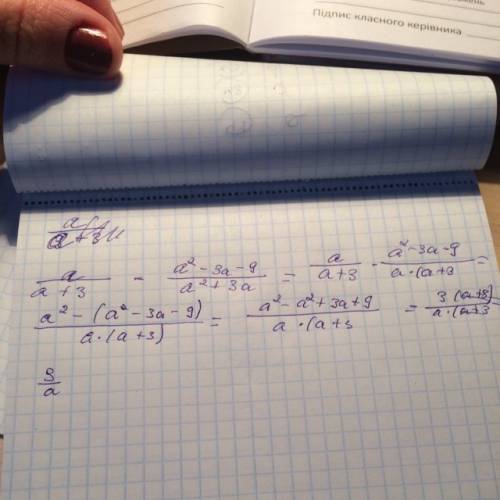 Підпис класного керівника
a/(a+3) - (a² - 3a - 9)/(a² + 3a) = a/(a+3) - (a² - 3a - 9)/(a·(a+3 =
(a² - (a² - 3a - 9))/(a·(a+3)) = (a² - a² + 3a + 9)/(a·(a+3 = 3(a+3)/(a·(a+3
3/a